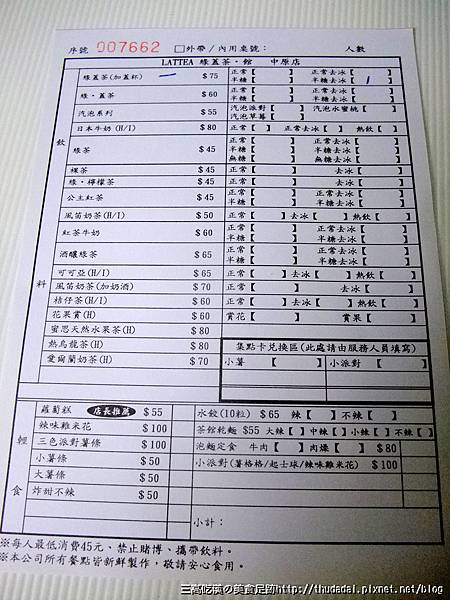 序號 007662 □外帶/內用桌號： 人數
LATTEA 綠蓋茶・館 中原店
飲料
綠蓋茶(加蓋杯) $75 正常【 】 正常去冰【 】
半糖【 】 半糖去冰【 】
綠・蓋茶 $60 正常【 】 正常去冰【 】
半糖【 】 半糖去冰【 】
汽泡系列 $55 汽泡派對【 】 汽泡水蜜桃【 】
汽泡草莓【 】
日本牛奶(H/I) $80 正常【 】 正常去冰【 】 熱飲【 】
綠茶 $45 正常【 】 正常去冰【 】
半糖【 】 半糖去冰【 】
無糖【 】 無糖去冰【 】
裸茶 $45 正常【 】 去冰【 】
綠・檸檬茶 $45 正常【 】 去冰【 】
公主紅茶 $45 正常【 】 正常去冰【 】
半糖【 】 半糖去冰【 】
風笛奶茶(H/I) $50 正常【 】去冰【 】熱飲【 】
紅茶牛奶 $60 正常【 】 正常去冰【 】
半糖【 】 半糖去冰【 】
酒釀綠茶 $65 正常【 】 正常去冰【 】
半糖【 】 半糖去冰【 】
可可亞(H/I) $65 正常【 】去冰【 】熱飲【 】
風笛奶茶(加奶酒) $70 正常【 】 去冰【 】
桔仔茶(H/I) $60 正常【 】去冰【 】熱飲【 】
花果賞(H) $60 賞花【 】 賞果【 】
蜜思天然水果茶(H) $80
熱烏龍茶(H) $80
愛爾蘭奶茶(H) $70
集點卡兌換區(此處請由服務人員填寫)
小薯【 】 小派對【 】
輕食
蘿蔔糕 店長推薦 $55
辣味雞米花 $100
三色派對薯條 $100
小薯條 $50
大薯條 $50
炸甜不辣 $50
水餃(10粒) $65 辣【 】不辣【 】
茶館乾麵 $55 大辣【 】中辣【 】小辣【 】不辣【 】
泡麵定食 牛肉【 】肉燥【 】 $80
小派對(薯格格/起士球/辣味雞米花) $100
小計：
※每人最低消費45元、禁止賭博、攜帶飲料。
※本公司所有餐點皆新鮮製作，敬請安心食用。
三高吃漢の美食足跡http://thudadai.pixnet.net/blog